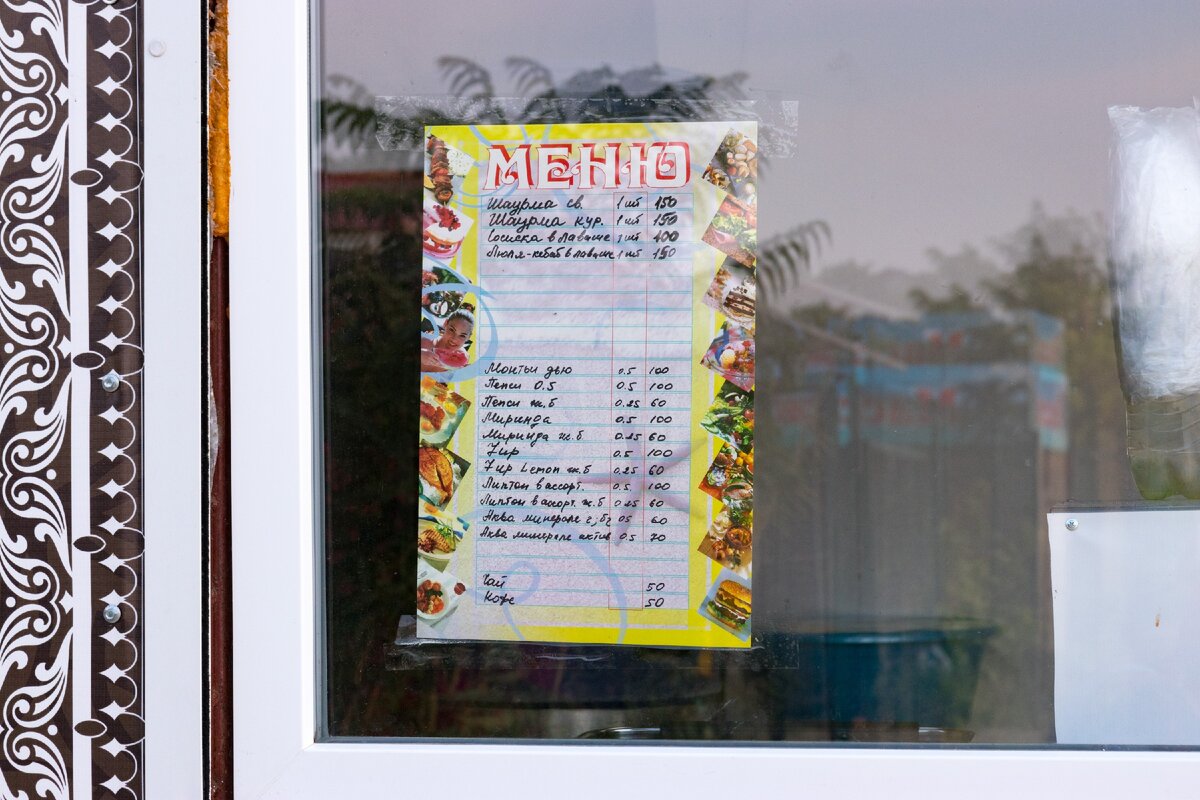 МЕНЮ
Шаурма св. 1 шт 150
Шаурма кур. 1 шт 150
Сосиска в лаваше 1 шт 100
Люля-кебаб в лаваше 1 шт 150
Монтьи дью 0.5 100
Пепси 0.5 0.5 100
Пепси ж.б 0.25 60
Миринда 0.5 100
Миринда ж.б. 0.25 60
7 up 0.5 100
7 up Lemon ж.б 0.25 60
Липтон в ассорт. 0.5 100
Липтон в ассорт. ж.б 0.25 60
Аква минерале г; б/г 05 60
Аква минерале актив 0.5 70
Чай 50
Кофе 50